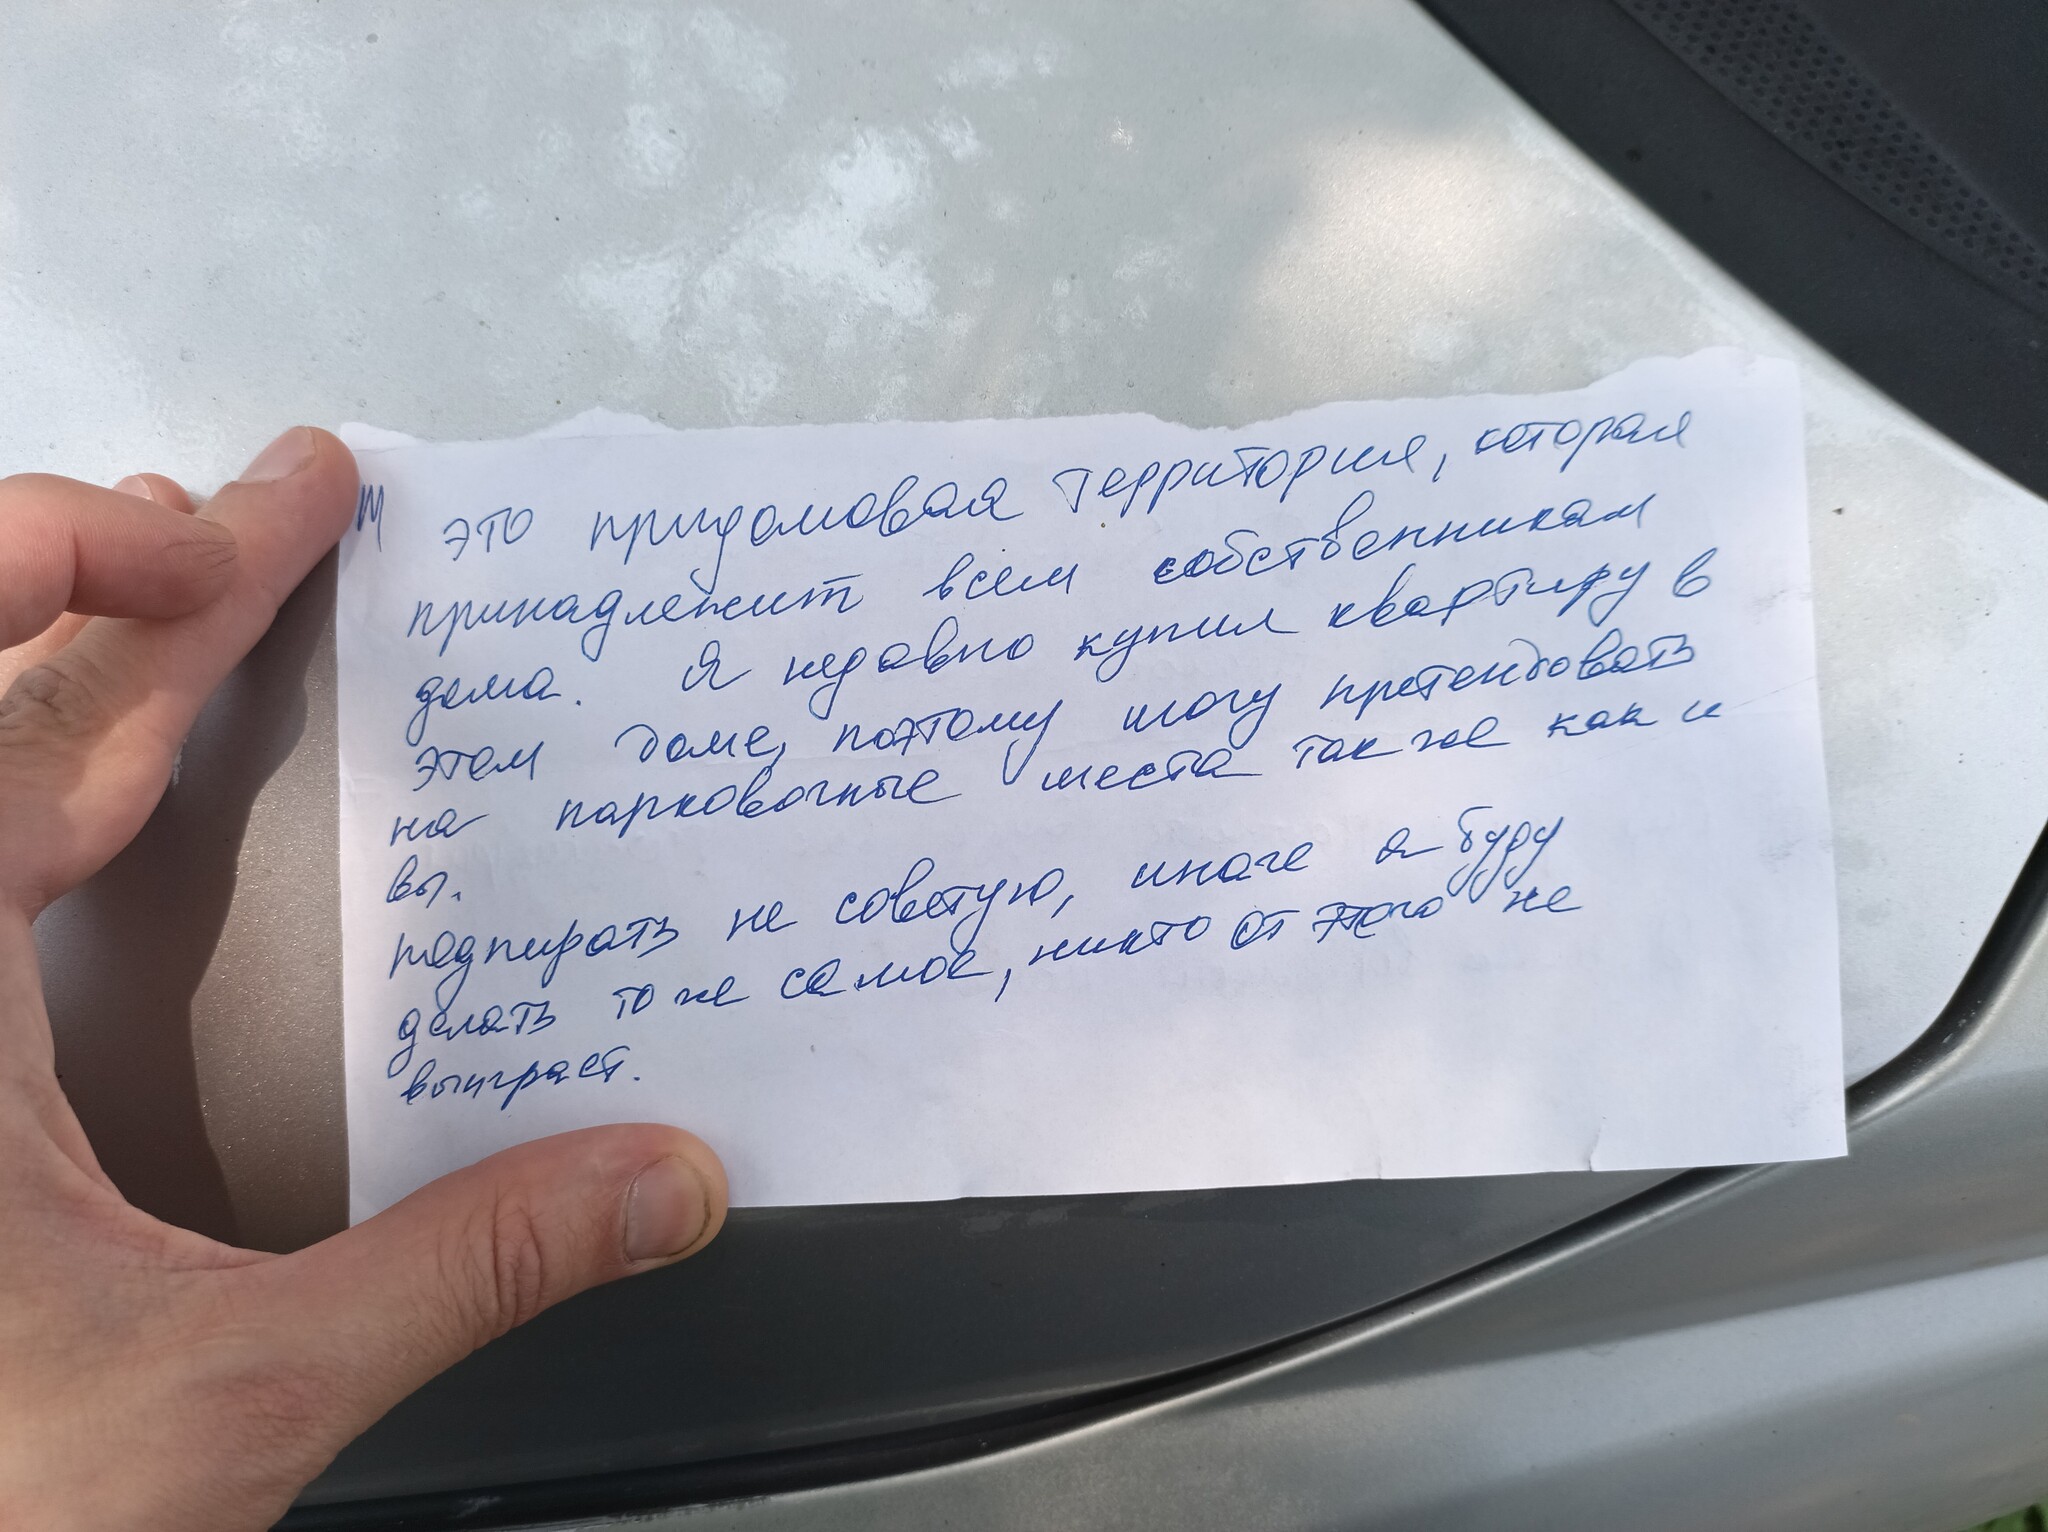 это придомовая территория, которая
принадлежит всем собственникам
дома. Я недавно купил квартиру в
этом доме, поэтому могу претендовать
на парковочные места также как и
вы.
подпирать не советую, иначе я буду
делать то же самое, никто от этого не
выиграет.